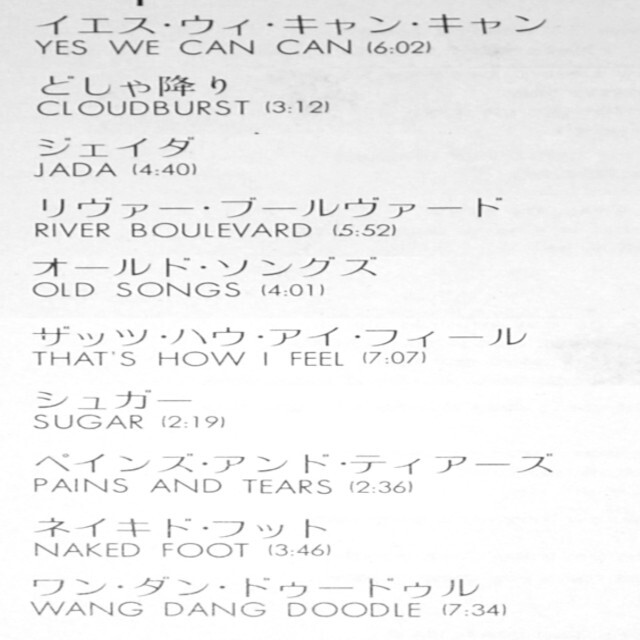 イエス・ウィ・キャン・キャン
YES WE CAN CAN (6:02)
どしゃ降り
CLOUDBURST (3:12)
ジェイダ
JADA (4:40)
リヴァー・ブールヴァード
RIVER BOULEVARD (5:52)
オールド・ソングズ
OLD SONGS (4:01)
ザッツ・ハウ・アイ・フィール
THAT'S HOW I FEEL (7:07)
シュガー
SUGAR (2:19)
ペインズ・アンド・ティアーズ
PAINS AND TEARS (2:36)
ネイキド・フット
NAKED FOOT (3:46)
ワン・ダン・ドゥードゥル
WANG DANG DOODLE (7:34)